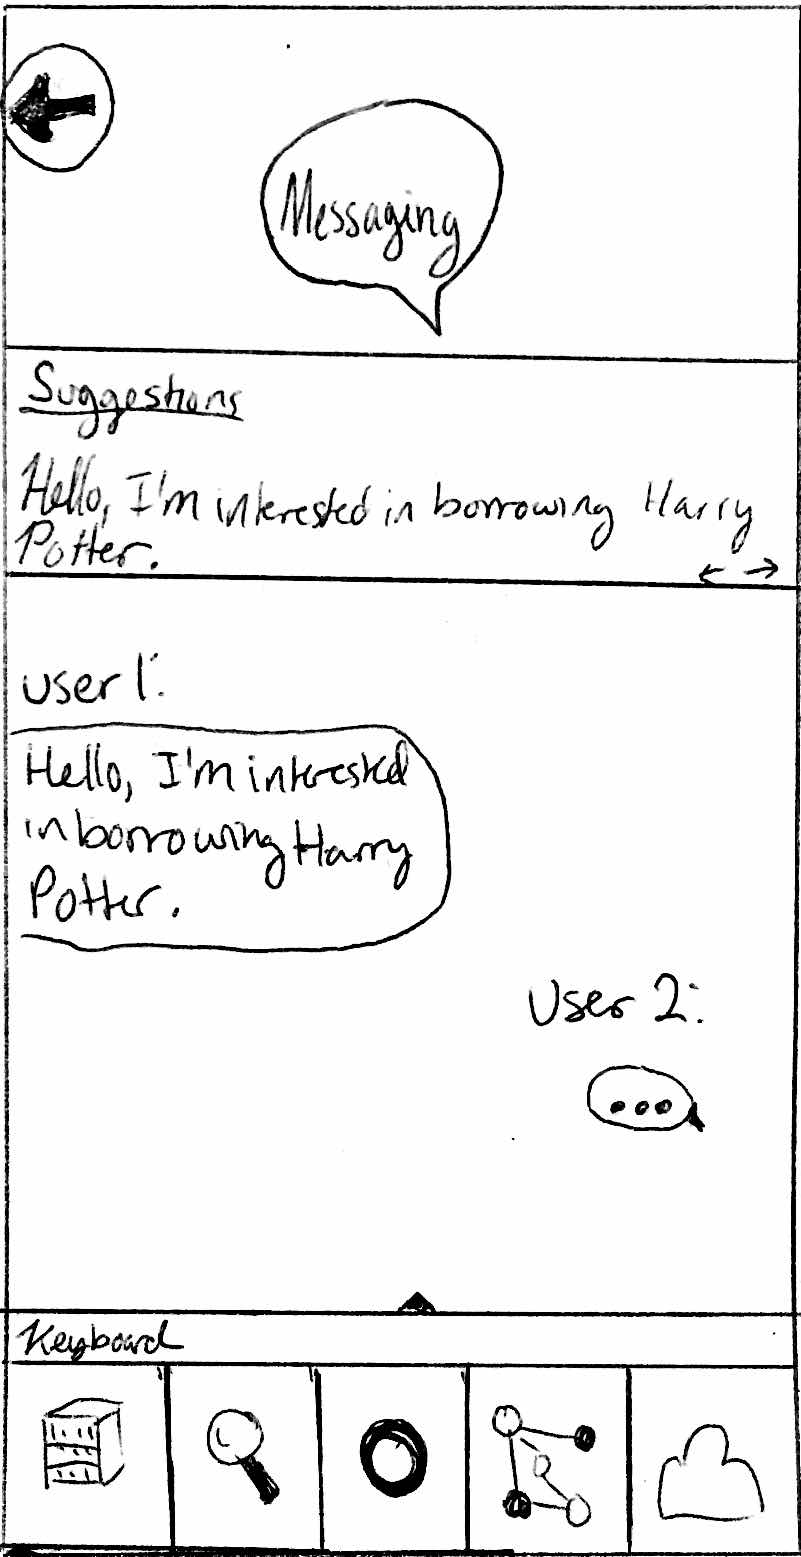 Messaging
Suggestions
Hello, I'm interested in borrowing Harry
Potter.
user 1:
Hello, I'm interested
in borrowing Harry
Potter.
User 2:
Keyboard